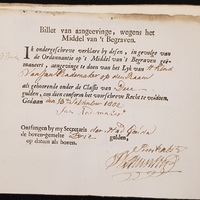 Billet van aangeevinge, wegens het
Middel van 't Begraven.
Ik ondergeschreven verklare by desen, in gevolge van
de Ordonnantie op 't Middel van 't Begraven geë-
maneert, aangevinge te doen van het Lyk van 't Kind
van Jan Rademaker op den Raam
als gehoorende onder de Classis van Drie
gulden, om dien conform het voorschreve Recht te voldoen.
Gedaan den 18 September 1802
Jan Rademaker
Ontfangen by my Secretaris der Stad Gouda
de boven-gemelte Drie gulden,
op datum als boven.